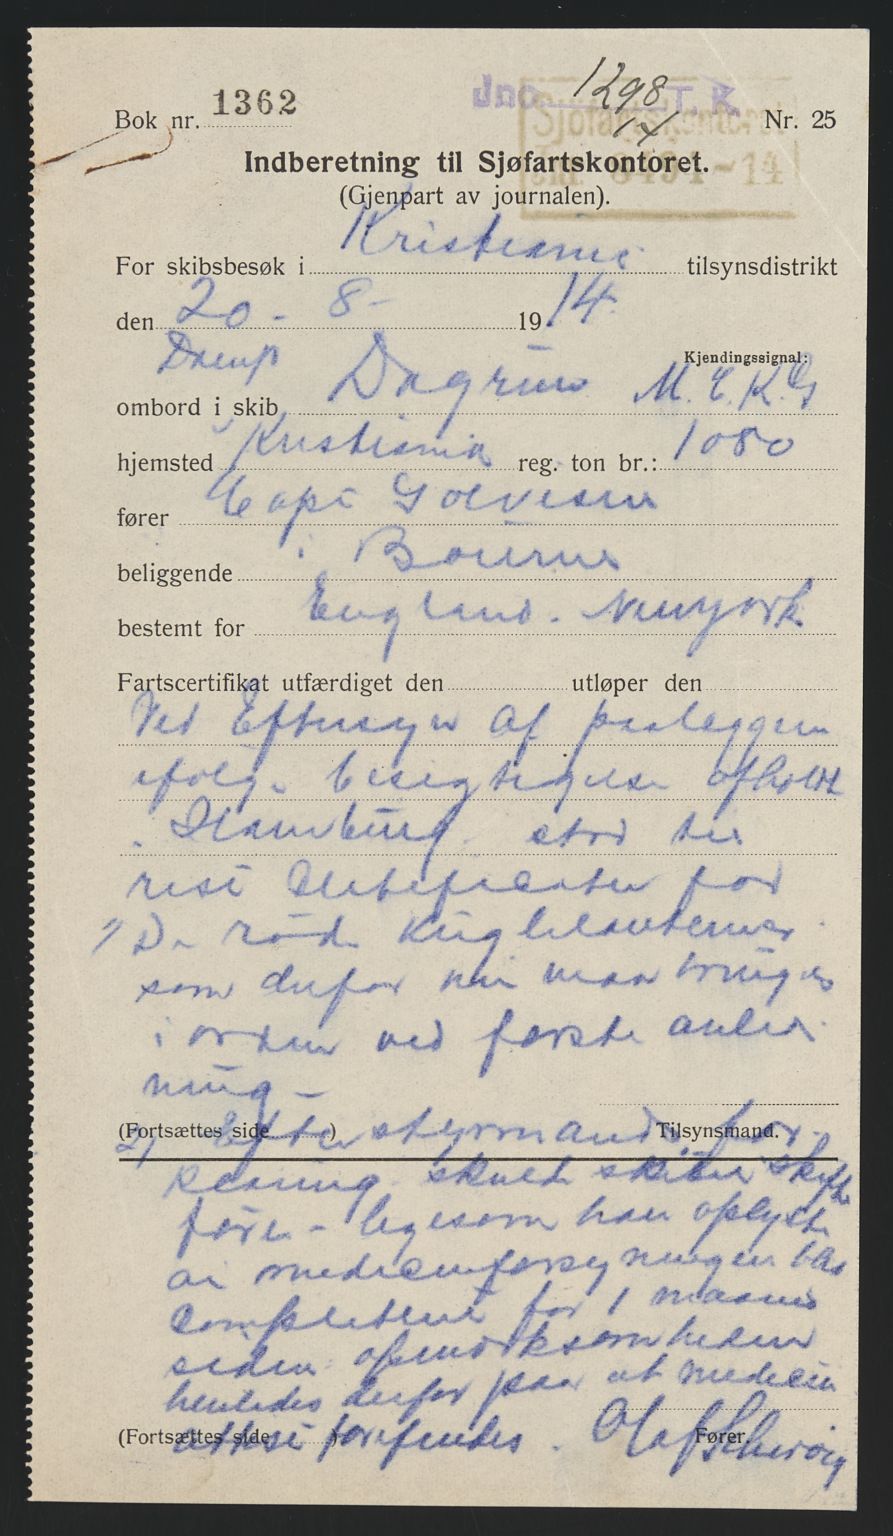 Bok nr. 1362
Jno. 1298 T.K.
14
Nr. 25
Sjøfartskontoret
Jnr. 8491-14
Indberetning til Sjøfartskontoret.
(Gjenpart av journalen).
For skibsbesøk i Kristiania tilsynsdistrikt
den 20 - 8 - 1914.
Kjendingssignal:
ombord i skib Damp Dagrun M.C.K.G
hjemsted Kristiania reg. ton br.: 1080
fører Capt
beliggende i
bestemt for England. Newyork
Fartscertifikat utfærdiget den utløper den
Ved Eftersyn af paalæggen
ifølg. besigtigelse afholdt
i Hamburg stod til
rest Certificater for
1) De røde Kuglelanterner
som derfor nu maa bringes
i orden ved første anled
ning -
(Fortsættes side ) Tilsynsmand.
2) Efter styrmands for-
klaring skuld skibet skifte
fører - ligesom han oplyste
at medicinforsyningen blev
completteret for 1 maaned
siden opmerksomheden
henledes derfor paa at medicin
attest forefindes. Olaf
(Fortsættes side ) Fører.